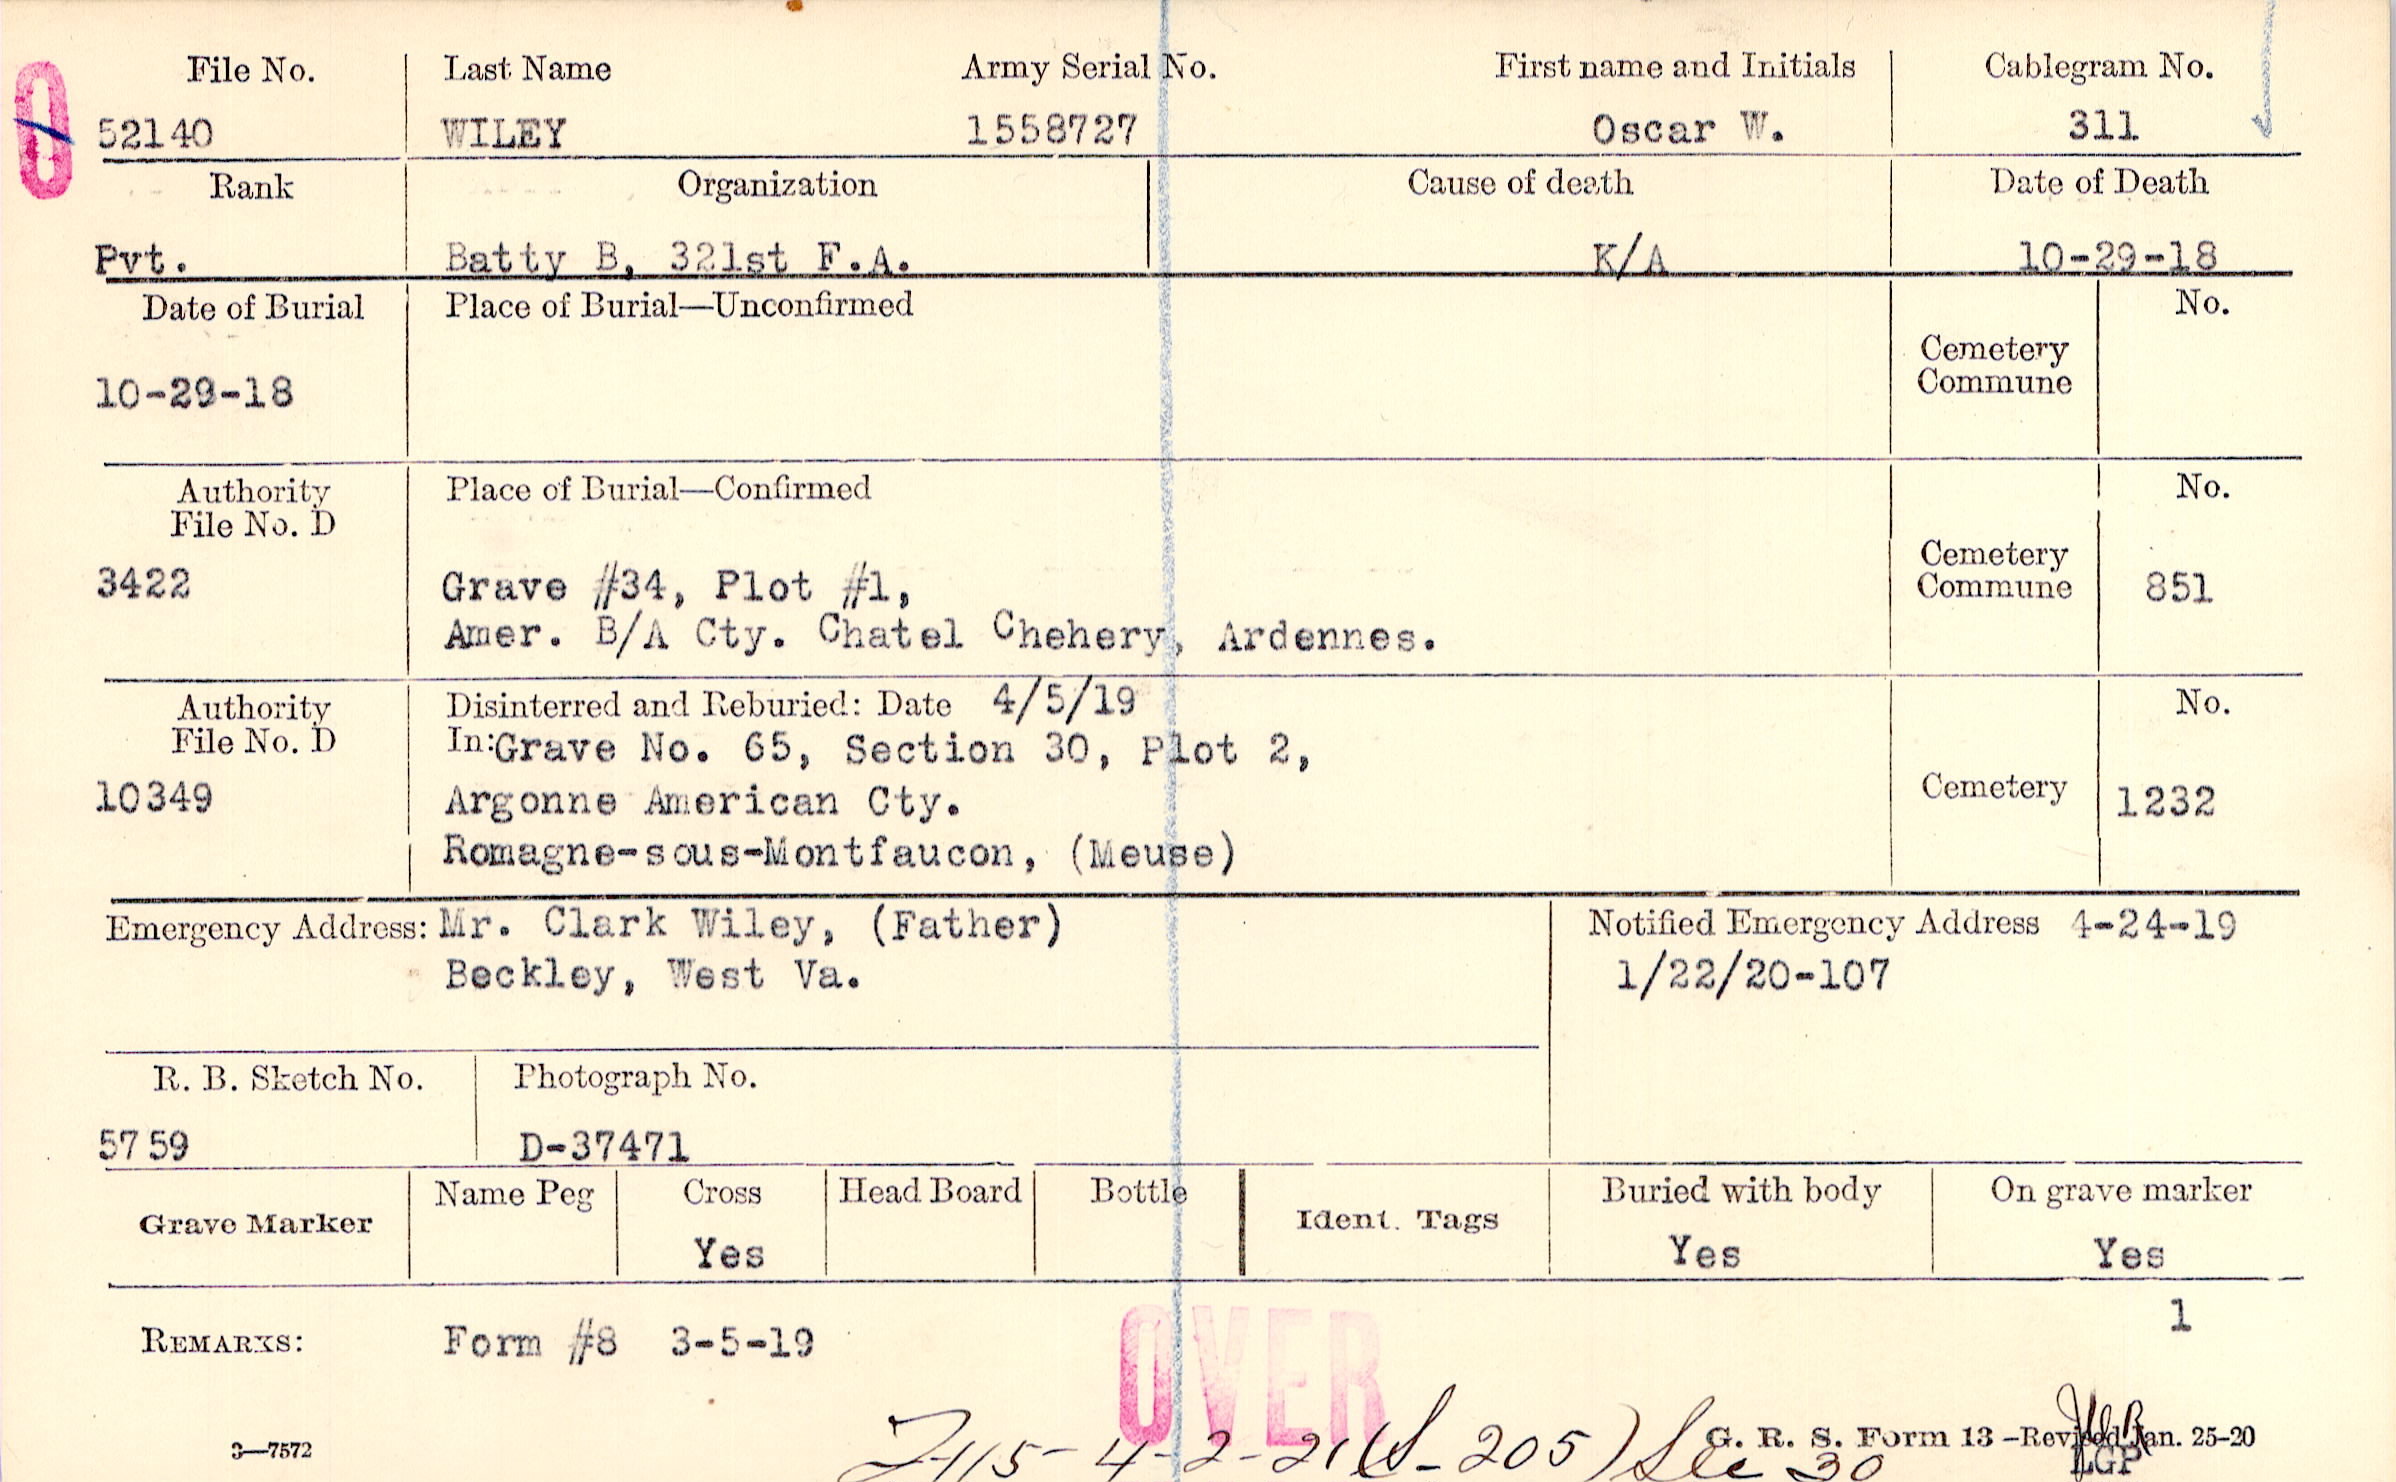 File No. Last Name Army Serial No. First name and Initials Cablegram No.
52140 WILEY 1558727 Oscar W. 311
Rank Organization Cause of death Date of Death
Pvt. Batty B, 321st F.A. K/A 10-29-18
Date of Burial Place of Burial—Unconfirmed No.
Cemetery
Commune
10-29-18
Authority Place of Burial—Confirmed No.
File No. D
Cemetery
3422 Grave #34, Plot #1, Commune 851
Amer. B/A Cty. Chatel Chehery, Ardennes.
Authority Disinterred and Reburied: Date 4/5/19 No.
File No. D In:Grave No. 65, Section 30, Plot 2,
10349 Argonne American Cty. Cemetery 1232
Romagne-sous-Montfaucon, (Meuse)
Emergency Address: Mr. Clark Wiley, (Father) Notified Emergency Address 4-24-19
Beckley, West Va. 1/22/20-107
R. B. Sketch No. Photograph No.
5759 D-37471
Grave Marker Name Peg Cross Head Board Bottle Ident. Tags Buried with body On grave marker
Yes Yes Yes
1
REMARKS: Form #8 3-5-19
OVER
4-2-21 (S-205) Sec 30
3—7572 G. R. S. Form 13—Revised Jan. 25-20
LGP